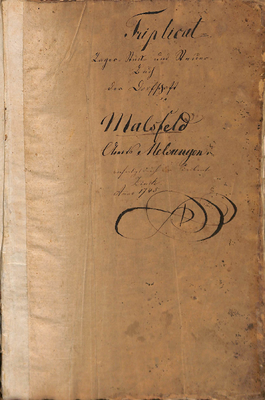 Triplicat
Lager Stück und Steuer
Buch
der Dorfschaft
Malsfeld
Ambts Melsungen
Anno 1745